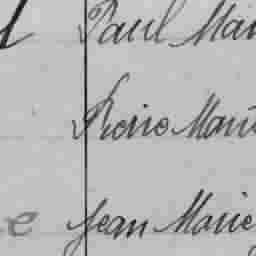 Paul Mari
Pierre Mari
e Jean Marie